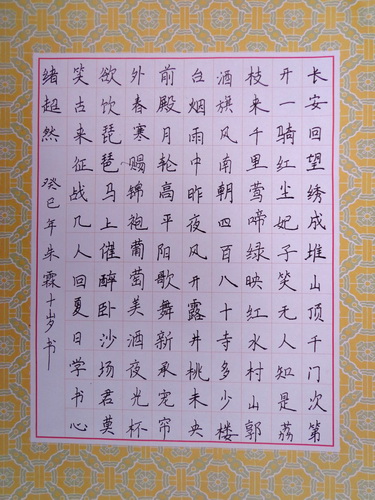 长安回望绣成堆山顶千门次第
开一骑红尘妃子笑无人知是荔
枝来千里莺啼绿映红水村山郭
酒旗风南朝四百八十寺多少楼
台烟雨中昨夜风开露井桃未央
前殿月轮高平阳歌舞新承宠帘
外春寒赐锦袍葡萄美酒夜光杯
欲饮琵琶马上催醉卧沙场君莫
笑古来征战几人回夏日学书心
绪超然 癸巳年朱霖十岁书